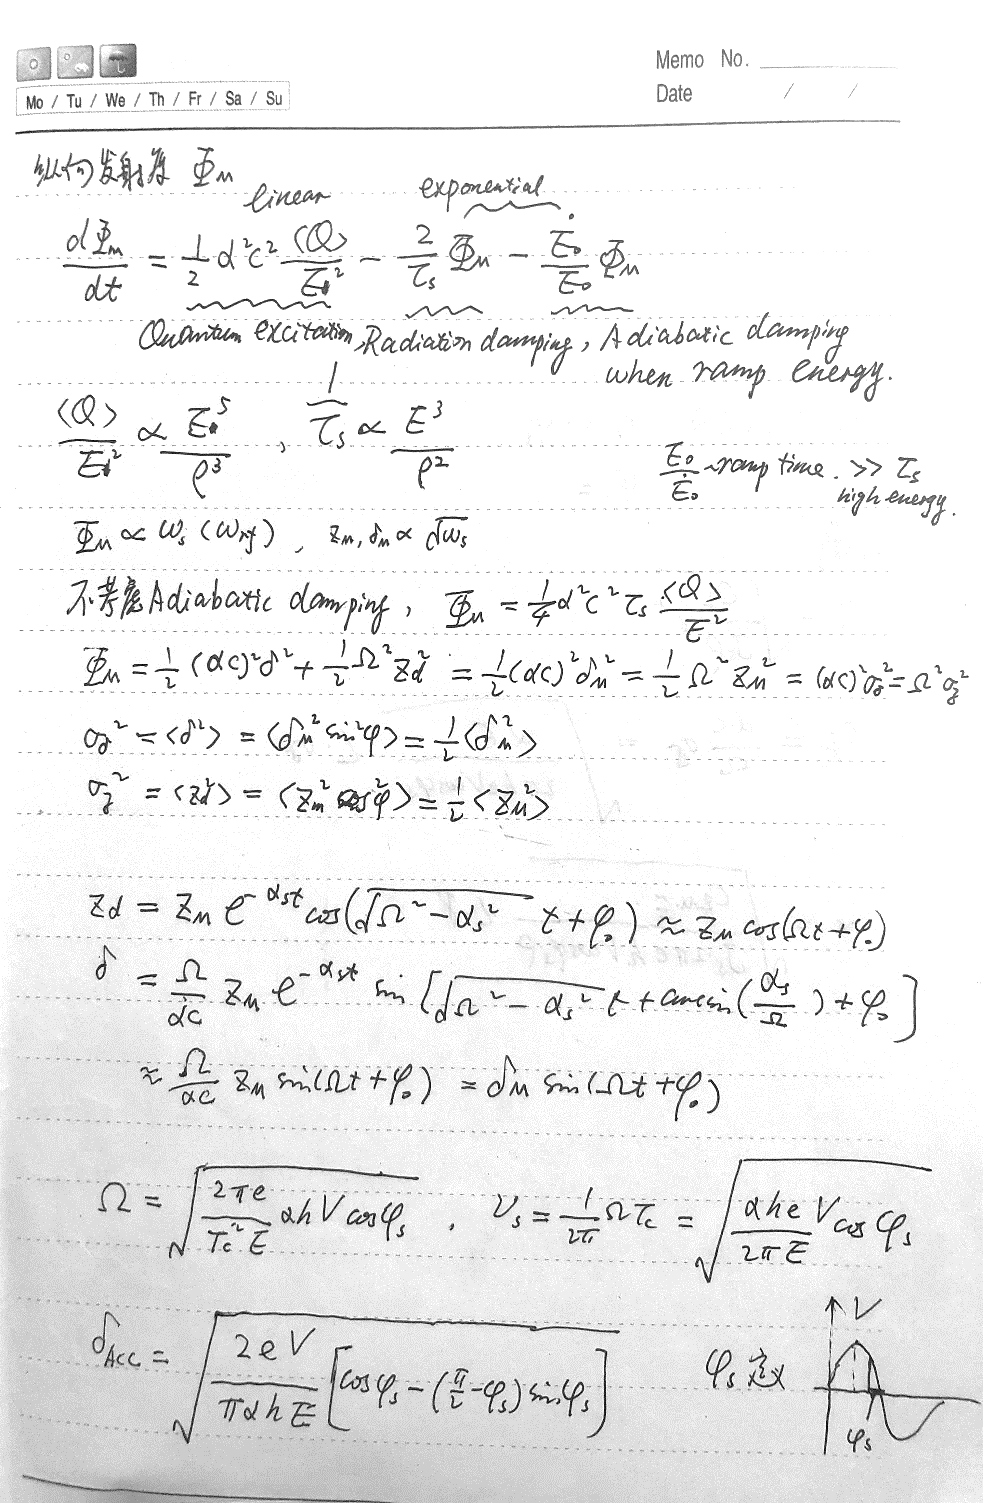 Memo No.
Mo / Tu / We / Th / Fr / Sa / Su
Date / /
纵向发射度 Φm
linear exponential
dΦm/dt = 1/2 α²c² <Q>/E₀² − 2/τs Φm − Ė₀/E₀ Φm
Quantum excitation, Radiation damping, Adiabatic damping
when ramp energy.
<Q>/E₀² ∝ E₀⁵/ρ³ , 1/τs ∝ E³/ρ²
E₀/Ė₀ ~ ramp time. >> τs
high energy.
Φm ∝ ωs (ωrf) , zm, δm ∝ √ωs
不考虑 Adiabatic damping, Φm = 1/4 α²c² τs <Q>/E²
Φm = 1/2 (αc)²δ² + 1/2 Ω²zd² = 1/2 (αc)²δm² = 1/2 Ω²zm² = (αc)²σδ² = Ω²σz²
σδ² = <δ²> = <δm² sin²φ> = 1/2 <δm²>
σz² = <zd²> = <zm² cos²φ> = 1/2 <zm²>
zd = zm e^(−αst) cos(√(Ω²−αs²) t + φ₀) ≈ zm cos(Ωt+φ₀)
δ = Ω/αc zm e^(−αst) sin[√(Ω²−αs²) t + arcsin(αs/Ω) + φ₀]
≈ Ω/αc zm sin(Ωt+φ₀) = δm sin(Ωt+φ₀)
Ω = √(2πe/Tc²E αhV cosφs) , νs = 1/2π ΩTc = √(αhe/2πE V cosφs)
δACC = √(2eV/παhE [cosφs − (π/2 − φs) sinφs])
φs 定义
V
φs